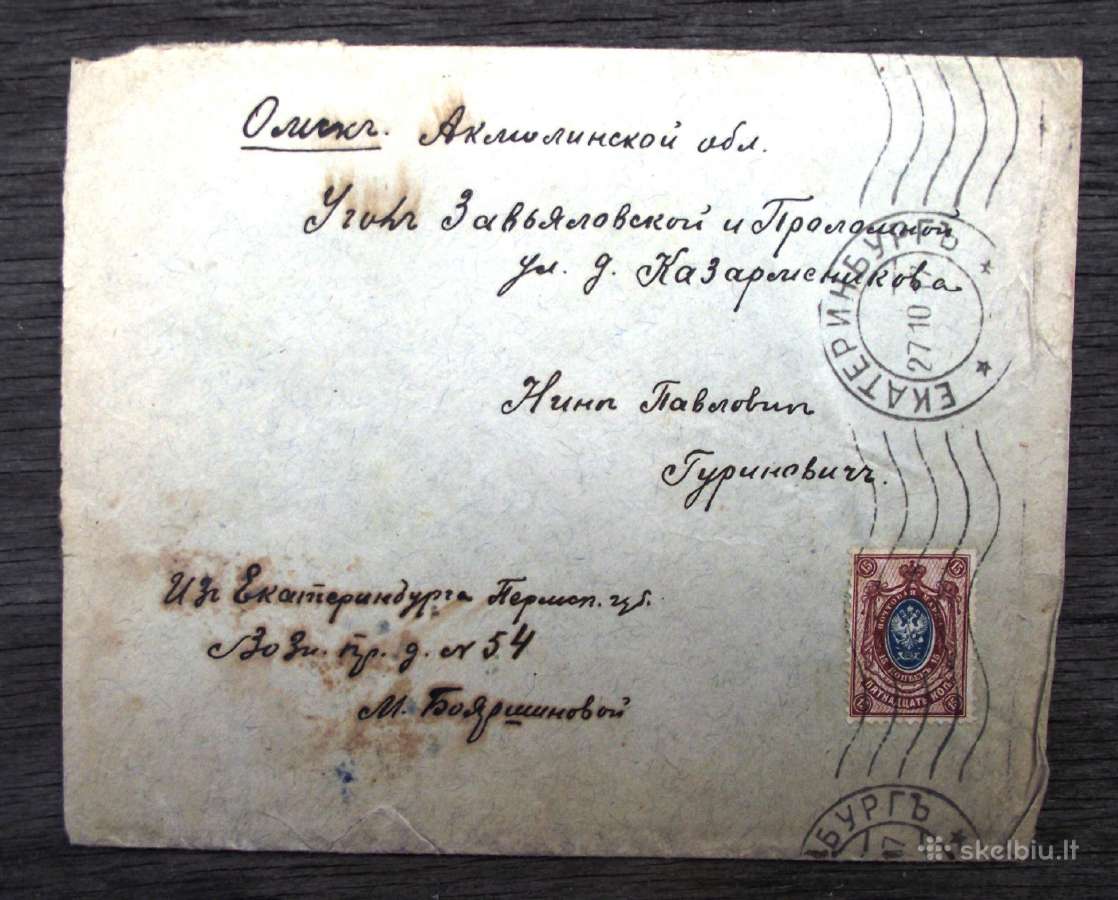 Омскъ. Акмолинской обл.
Уголъ Завьяловской и Проломной
ул. д. Казарменикова
Нинѣ Павловнѣ
Гуриновичъ.
Изъ Екатеринбурга Пермск. губ.
Возн. пр. д. № 54
М. Бояршиновой
ЕКАТЕРИНБУРГЪ
27 10
15 15
ПОЧТОВАЯ МАРКА
15 КОПѢЕКЪ 15
ПЯТНАДЦАТЬ КОП.
15 15
БУРГЪ
skelbiu.lt